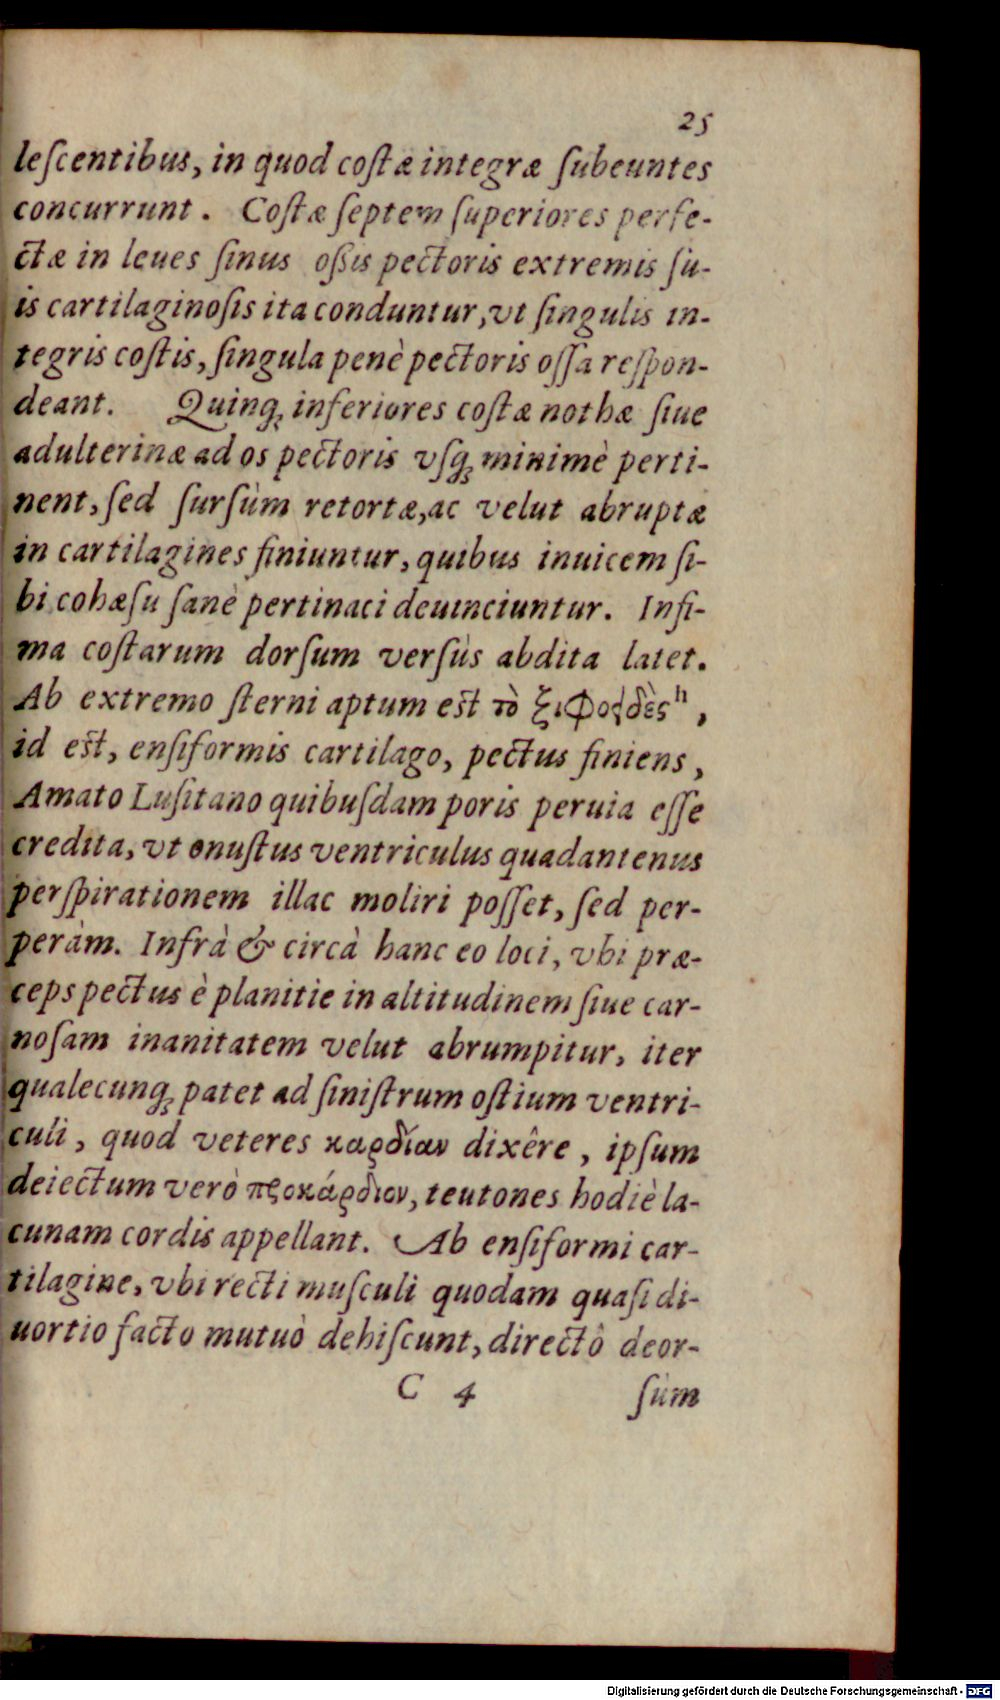 25
leſcentibus, in quod coſtæ integræ ſubeuntes
concurrunt. Coſtæ ſeptem ſuperiores perfe-
ctæ in leues ſinus oſsis pectoris extremis ſu-
is cartilaginoſis ita conduntur, vt ſingulis in-
tegris coſtis, ſingula penè pectoris oſſa reſpon-
deant. Quinq; inferiores coſtæ nothæ ſiue
adulterinæ ad os pectoris vſq; minimè perti-
nent, ſed ſurſùm retortæ, ac velut abruptæ
in cartilagines finiuntur, quibus inuicem ſi-
bi cohæſu ſanè pertinaci deuinciuntur. Infi-
ma coſtarum dorſum verſùs abdita latet.
Ab extremo ſterni aptum eſt τὸ ξιφοειδὲς h,
id eſt, enſiformis cartilago, pectus finiens,
Amato Luſitano quibuſdam poris peruia eſſe
credita, vt onuſtus ventriculus quadantenus
perſpirationem illac moliri poſſet, ſed per-
peràm. Infrà & circà hanc eo loci, vbi præ-
ceps pectus è planitie in altitudinem ſiue car-
noſam inanitatem velut abrumpitur, iter
qualecunq; patet ad ſiniſtrum oſtium ventri-
culi, quod veteres καρδίαν dixêre, ipſum
deiectum verò προκάρδιον, teutones hodiè la-
cunam cordis appellant. Ab enſiformi car-
tilagine, vbi recti muſculi quodam quaſi di-
uortio facto mutuò dehiſcunt, directô deor-
C 4 ſùm
Digitalisierung gefördert durch die Deutsche Forschungsgemeinschaft - DFG